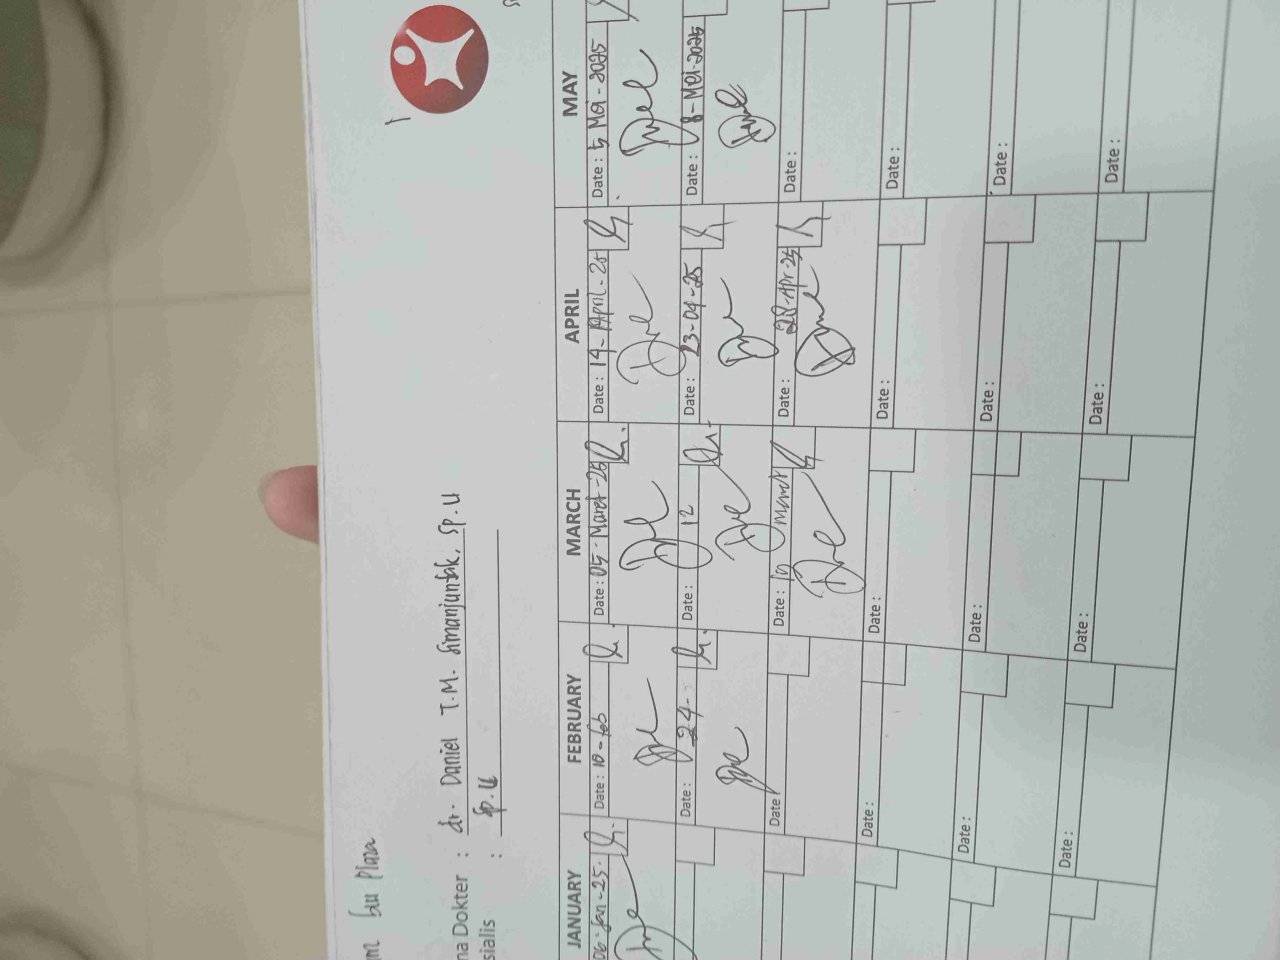 dr. Daniel T.M. Simanjuntak, Sp.U
na Dokter :
sialis : Sp.U
JANUARY FEBRUARY MARCH APRIL MAY
06-Jan-25 Date : 10-feb Date : 05-Maret-25 Date : 14-April-25 Date : 5 Mei-2025
Date : 24- Date : 12 Date : 23-04-25 Date : 8-Mei-2025
Date Date : 19 maret Date : 28-Apr-25 Date :
Date : Date : Date : Date :
Date : Date : Date : Date :
Date : Date : Date : Date :